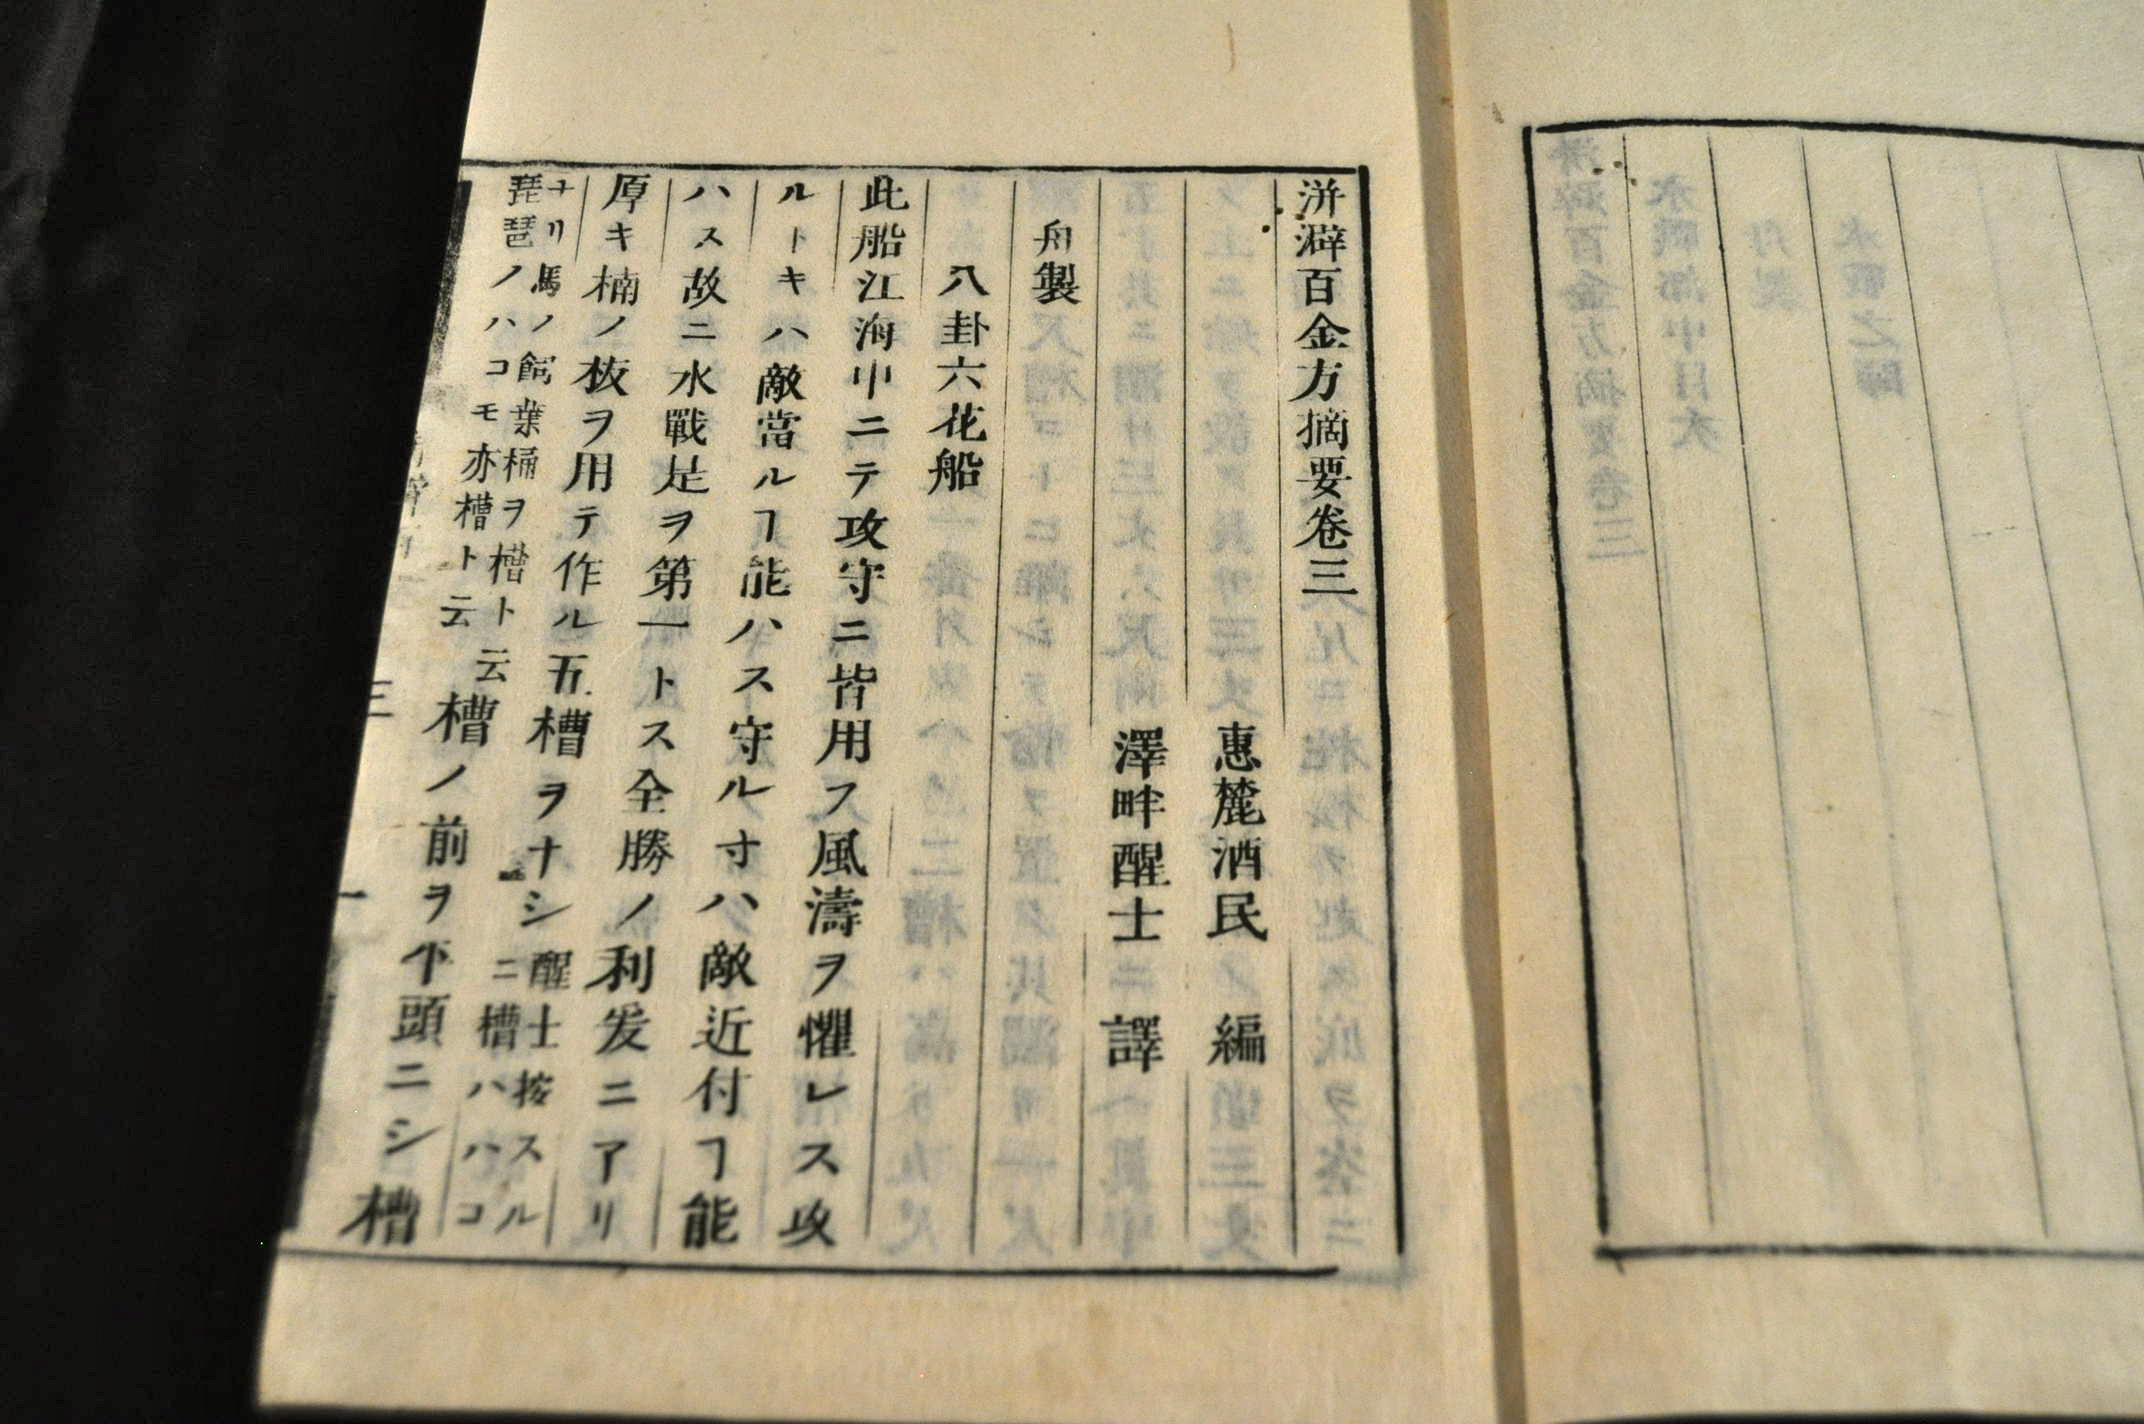 洴澼百金方摘要卷三
惠麓酒民 編
澤畔醒士 譯
舟製
八卦六花船
此船江海中ニテ攻守ニ皆用フ風濤ヲ懼レス攻
ルトキハ敵當ルヿ能ハス守ル寸ハ敵近付ヿ能
ハス故ニ水戰是ヲ第一トス全勝ノ利爰ニアリ
厚キ楠ノ板ヲ用テ作ル五槽ヲナシ醒士按スル
ニ槽ハハコ
ナリ馬ノ飼葉桶ヲ槽ト云
琵琶ノハコモ亦槽ト云槽ノ前ヲ平頭ニシ槽
三
一